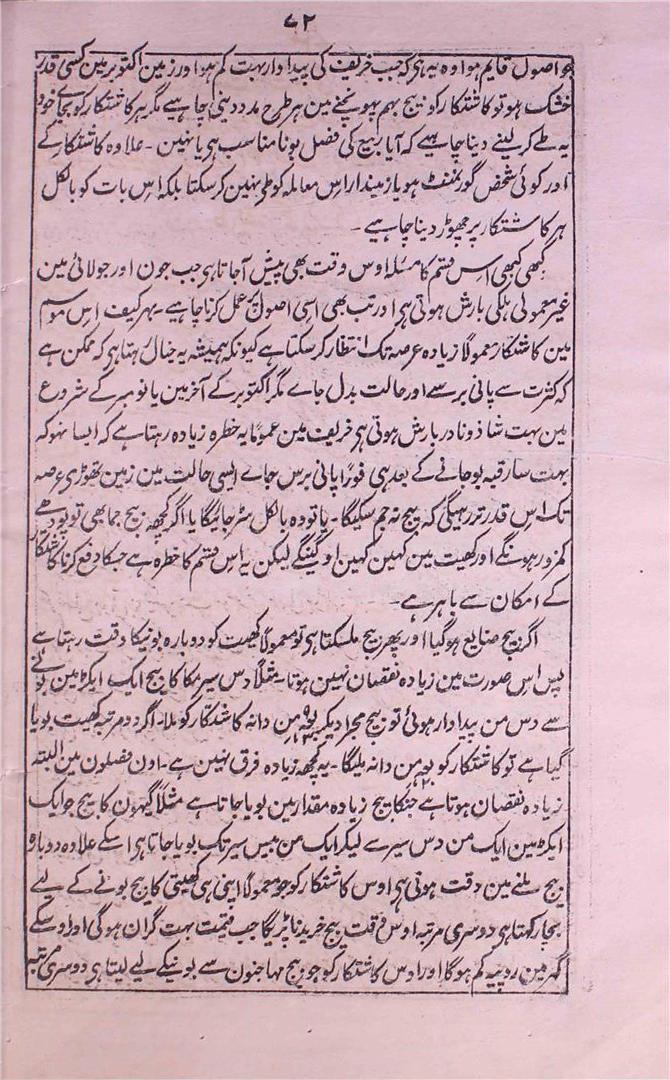 ۷۲
جو اصول قایم ہوا وہ یہ ہی کہ جب خریف کی پیداوار بہت کم ہو اور زمین اکتوبر مین کسی قدر
خشک ہو تو کاشتکار کو بیج بہم پہونچنے مین ہر طرح مدد دینی چاہیے مگر ہر کاشتکار کو بجای خود
یہ طے کر لینے دینا چاہیے کہ آیا ربیع کی فصل بونا مناسب ہی یا نہین - علاوہ کاشتکار کے
اور کوئی شخص گورنمنٹ ہو یا زمیندار اس معاملہ کو طی نہین کر سکتا بلکہ اس بات کو بالکل
ہر کاشتکار پر چھوڑ دینا چاہیے -
کبھی کبھی اس قسم کا مسئلہ اوس وقت بھی پیش آجاتا ہی جب جون اور جولائی مین
غیر معمولی ہلکی بارش ہوتی ہی اور تب بھی اسی اصول پر عمل کرنا چاہیے - بہرکیف اس موسم
مین کاشتکار معمولاً زیادہ عرصہ تک انتظار کر سکتا ہے کیونکہ ہمیشہ یہ خیال رہتا ہی کہ ممکن ہے
کہ کثرت سے پانی برسے اور حالت بدل جاے مگر اکتوبر کے آخر مین یا نومبر کے شروع
مین بہت شاذ و نادر بارش ہوتی ہی خریف مین عموماً یہ خطرہ زیادہ رہتا ہے کہ ایسا نہو کہ
بہت سا رقبہ بو جانے کے بعد ہی فوراً پانی برس جاے ایسی حالت مین زمین تھوڑی عرصہ
تک اس قدر تر رہیگی کہ بیج نہ جم سکیگا - یا تو وہ بالکل سڑ جائیگا یا اگر کچھ بیج جما بھی تو پودھے
کمزور ہونگے اور کھیت مین کہین کہین اوگینگے لیکن یہ اس قسم کا خطرہ ہے جسکا دفع کرنا کاشتکار
کے امکان سے باہر ہے -
اگر بیج ضایع ہو گیا اور پھر بیج ملسکتا ہی تو معمولاً کھیت کو دوبارہ بونیکا وقت رہتا ہے
پس اس صورت مین زیادہ نقصان نہین ہوتا - مثلاً دس سیر مکا کا بیج ایک ایکڑ مین بونے
سے دس من پیداوار ہوئی تو بیج مجرا دیکر من دانہ کاشتکار کو ملا - اگر دو مرتبہ کھیت بویا
گیا ہے تو کاشتکار کو من دانہ ملیگا - یہ کچھ زیادہ فرق نہین ہے - اون فصلون مین البتہ
زیادہ نقصان ہوتا ہے جنکا بیج زیادہ مقدار مین بویا جاتا ہے مثلاً گیہون کا بیج جو ایک
ایکڑ مین ایک من دس سیر سے لیکر ایک من بیس سیر تک بویا جاتا ہی اسکے علاوہ دوبارہ
بیج ملنے مین دقت ہوتی ہی اوس کاشتکار کو جو معمولاً اپنی ہی کھیتی کا بیج بونے کے لیے
بچا رکھتا ہی دوسری مرتبہ اوس وقت بیج خریدنا پڑیگا جب قیمت بہت گران ہوگی اور اوسکے
گہر مین روپیہ کم ہوگا اور اوس کاشتکار کو جو بیج مہاجنون سے بونیکے لیے لیتا ہی دوسری مرتبہ